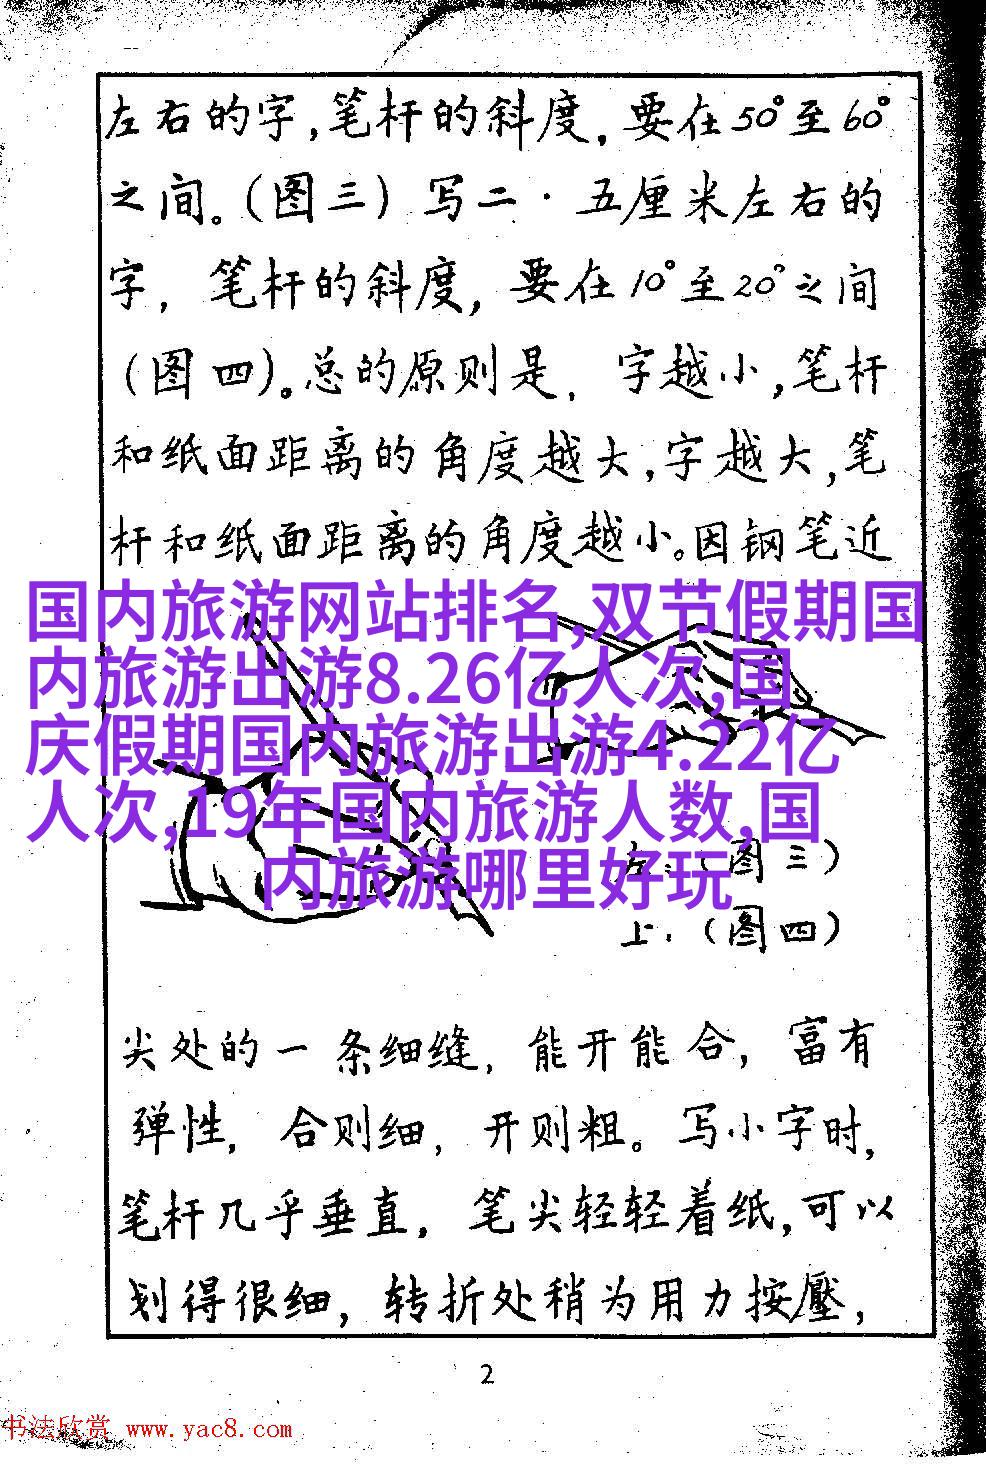 左右的字,笔杆的斜度,要在50°至60°
之间。(图三)写二·五厘米左右的
字,笔杆的斜度,要在10°至20°之间
(图四)。总的原则是,字越小,笔杆
和纸面距离的角度越大,字越大,笔
杆和纸面距离的角度越小。因钢笔近
国内旅游网站排名,双节假期国
内旅游出游8.26亿人次,国
庆假期国内旅游出游4.22亿
人次,19年国内旅游人数,国
内旅游哪里好玩
左.(图三)
上.(图四)
尖处的一条细缝,能开能合,富有
弹性,合则细,开则粗。写小字时,
笔杆几乎垂直,笔尖轻轻着纸,可以
划得很细,转折处稍为用力按壓,
2
书法欣赏 www.yac8.com